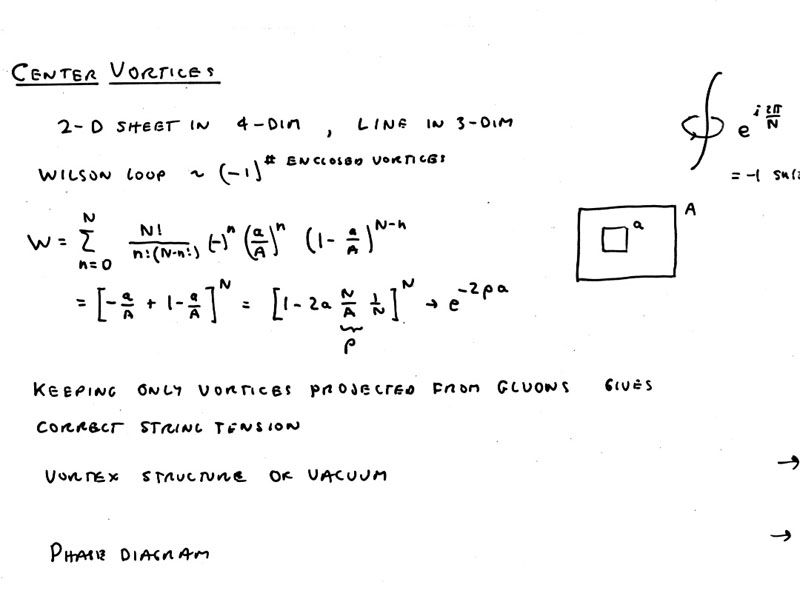 CENTER VORTICES
2-D SHEET IN 4-DIM , LINE IN 3-DIM
e^{i 2π/N}
= -1 SU(2
WILSON LOOP ~ (-1)^{# ENCLOSED VORTICES}
A
a
W = \sum_{n=0}^{N} \frac{N!}{n!(N-n!)} (-)^n (\frac{a}{A})^n (1 - \frac{a}{A})^{N-n}
= [-\frac{a}{A} + 1 - \frac{a}{A}]^N = [1 - 2a \frac{N}{A} \frac{1}{N}]^N → e^{-2ρa}
ρ
KEEPING ONLY VORTICES PROJECTED FROM GLUONS GIVES
CORRECT STRING TENSION
VORTEX STRUCTURE OF VACUUM →
→
PHASE DIAGRAM